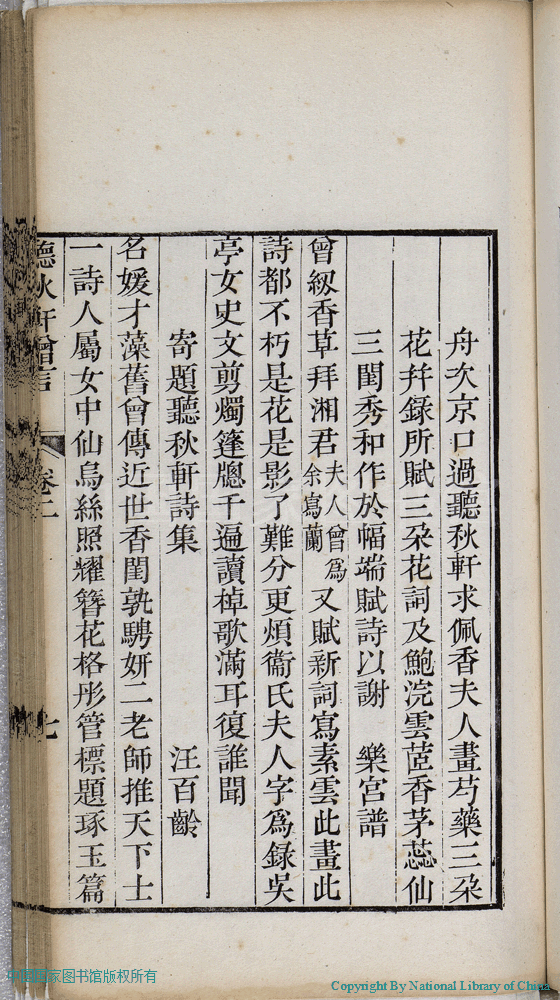 舟次京口過聽秋軒求佩香夫人畫芍藥三朶
花幷錄所賦三朶花詞及鮑浣雲茝香茅蕊仙
三閨秀和作於幅端賦詩以謝　樂宮譜
曾紉香草拜湘君夫人曾爲余寫蘭又賦新詞寫素雲此畫此
詩都不朽是花是影了難分更煩衞氏夫人字爲錄吳
亭女史文剪燭篷牕千遍讀棹歌滿耳復誰聞
寄題聽秋軒詩集　汪百齡
名媛才藻舊曾傳近世香閨孰騁妍二老師推天下士
一詩人屬女中仙烏絲照耀簪花格彤管標題琢玉篇
聽秋軒贈言　卷二　七
中國国家图书馆版权所有
Copyright By National Library of China